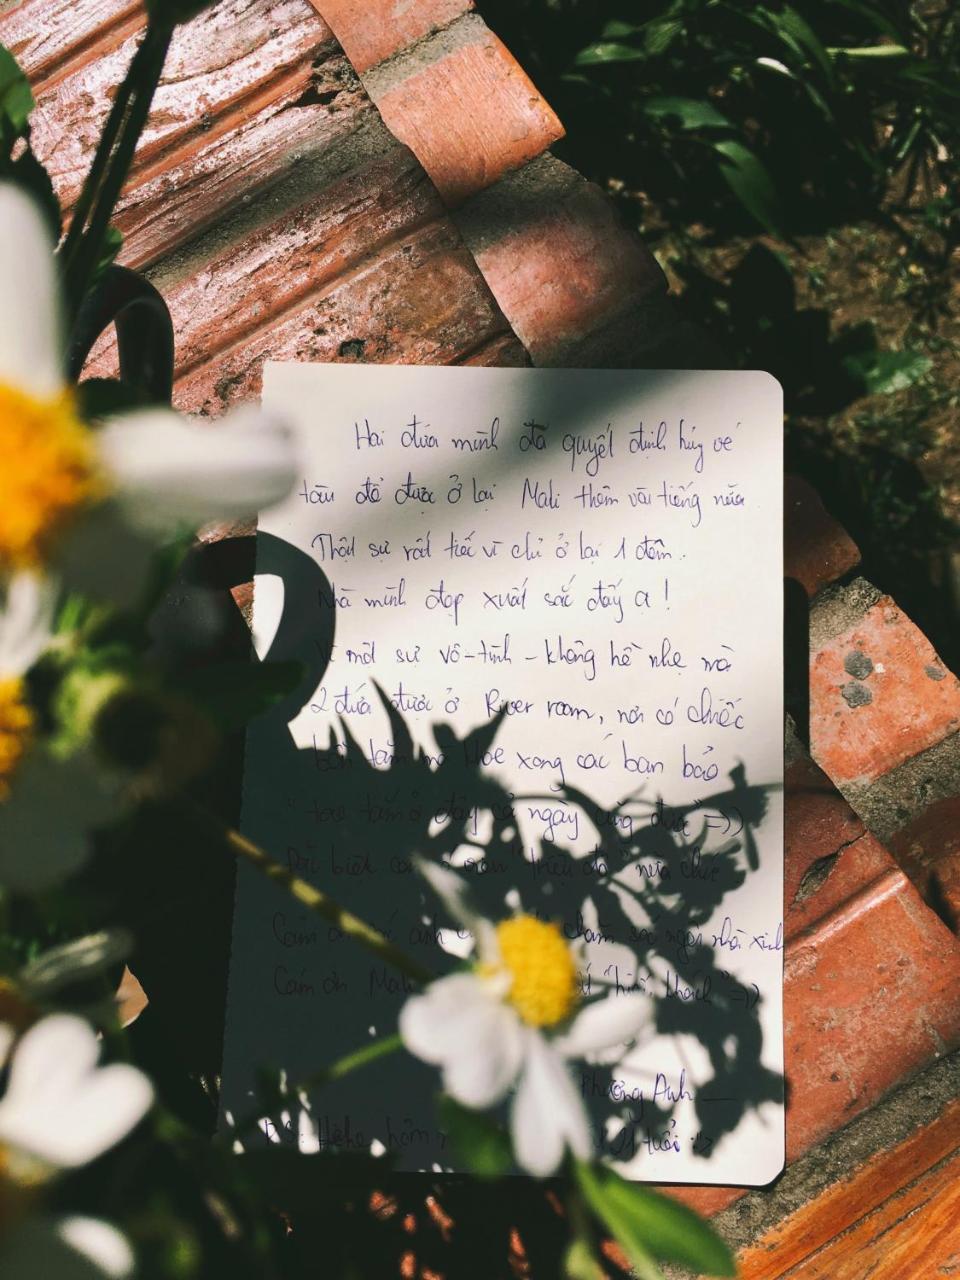 Hai đứa mình đã quyết định hủy vé
tàu để được ở lại Mali thêm vài tiếng nữa
Thật sự rất tiếc vì chỉ ở lại 1 đêm.
Nhà mình đẹp xuất sắc đấy ạ!
Vì một sự vô-tình-không hề nhẹ mà
2 đứa được ở River room, nơi có chiếc
bồn tắm mà khoe xong các bạn bảo
"tao tắm ở đây cả ngày cũng được" =))
Đặc biệt còn view "triệu đô" nữa chứ
Cảm ơn các anh chăm sóc ngôi nhà xinh
Cảm ơn Mali khách" =))
Phương Anh
P.S: Hehe hôm 21 tuổi :">